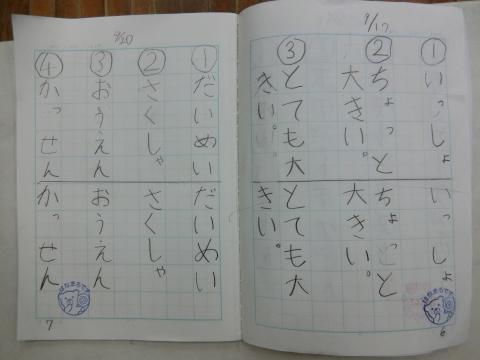 9/17
① いっしょ いっしょ
② ちょっと ちょっと
大きい。 大きい。
③ とても大 とても大
きい。 きい。
6
9/20
① だいめい だいめい
② さくしゃ さくしゃ
③ おうえん おうえん
④ かっせん かっせん
7